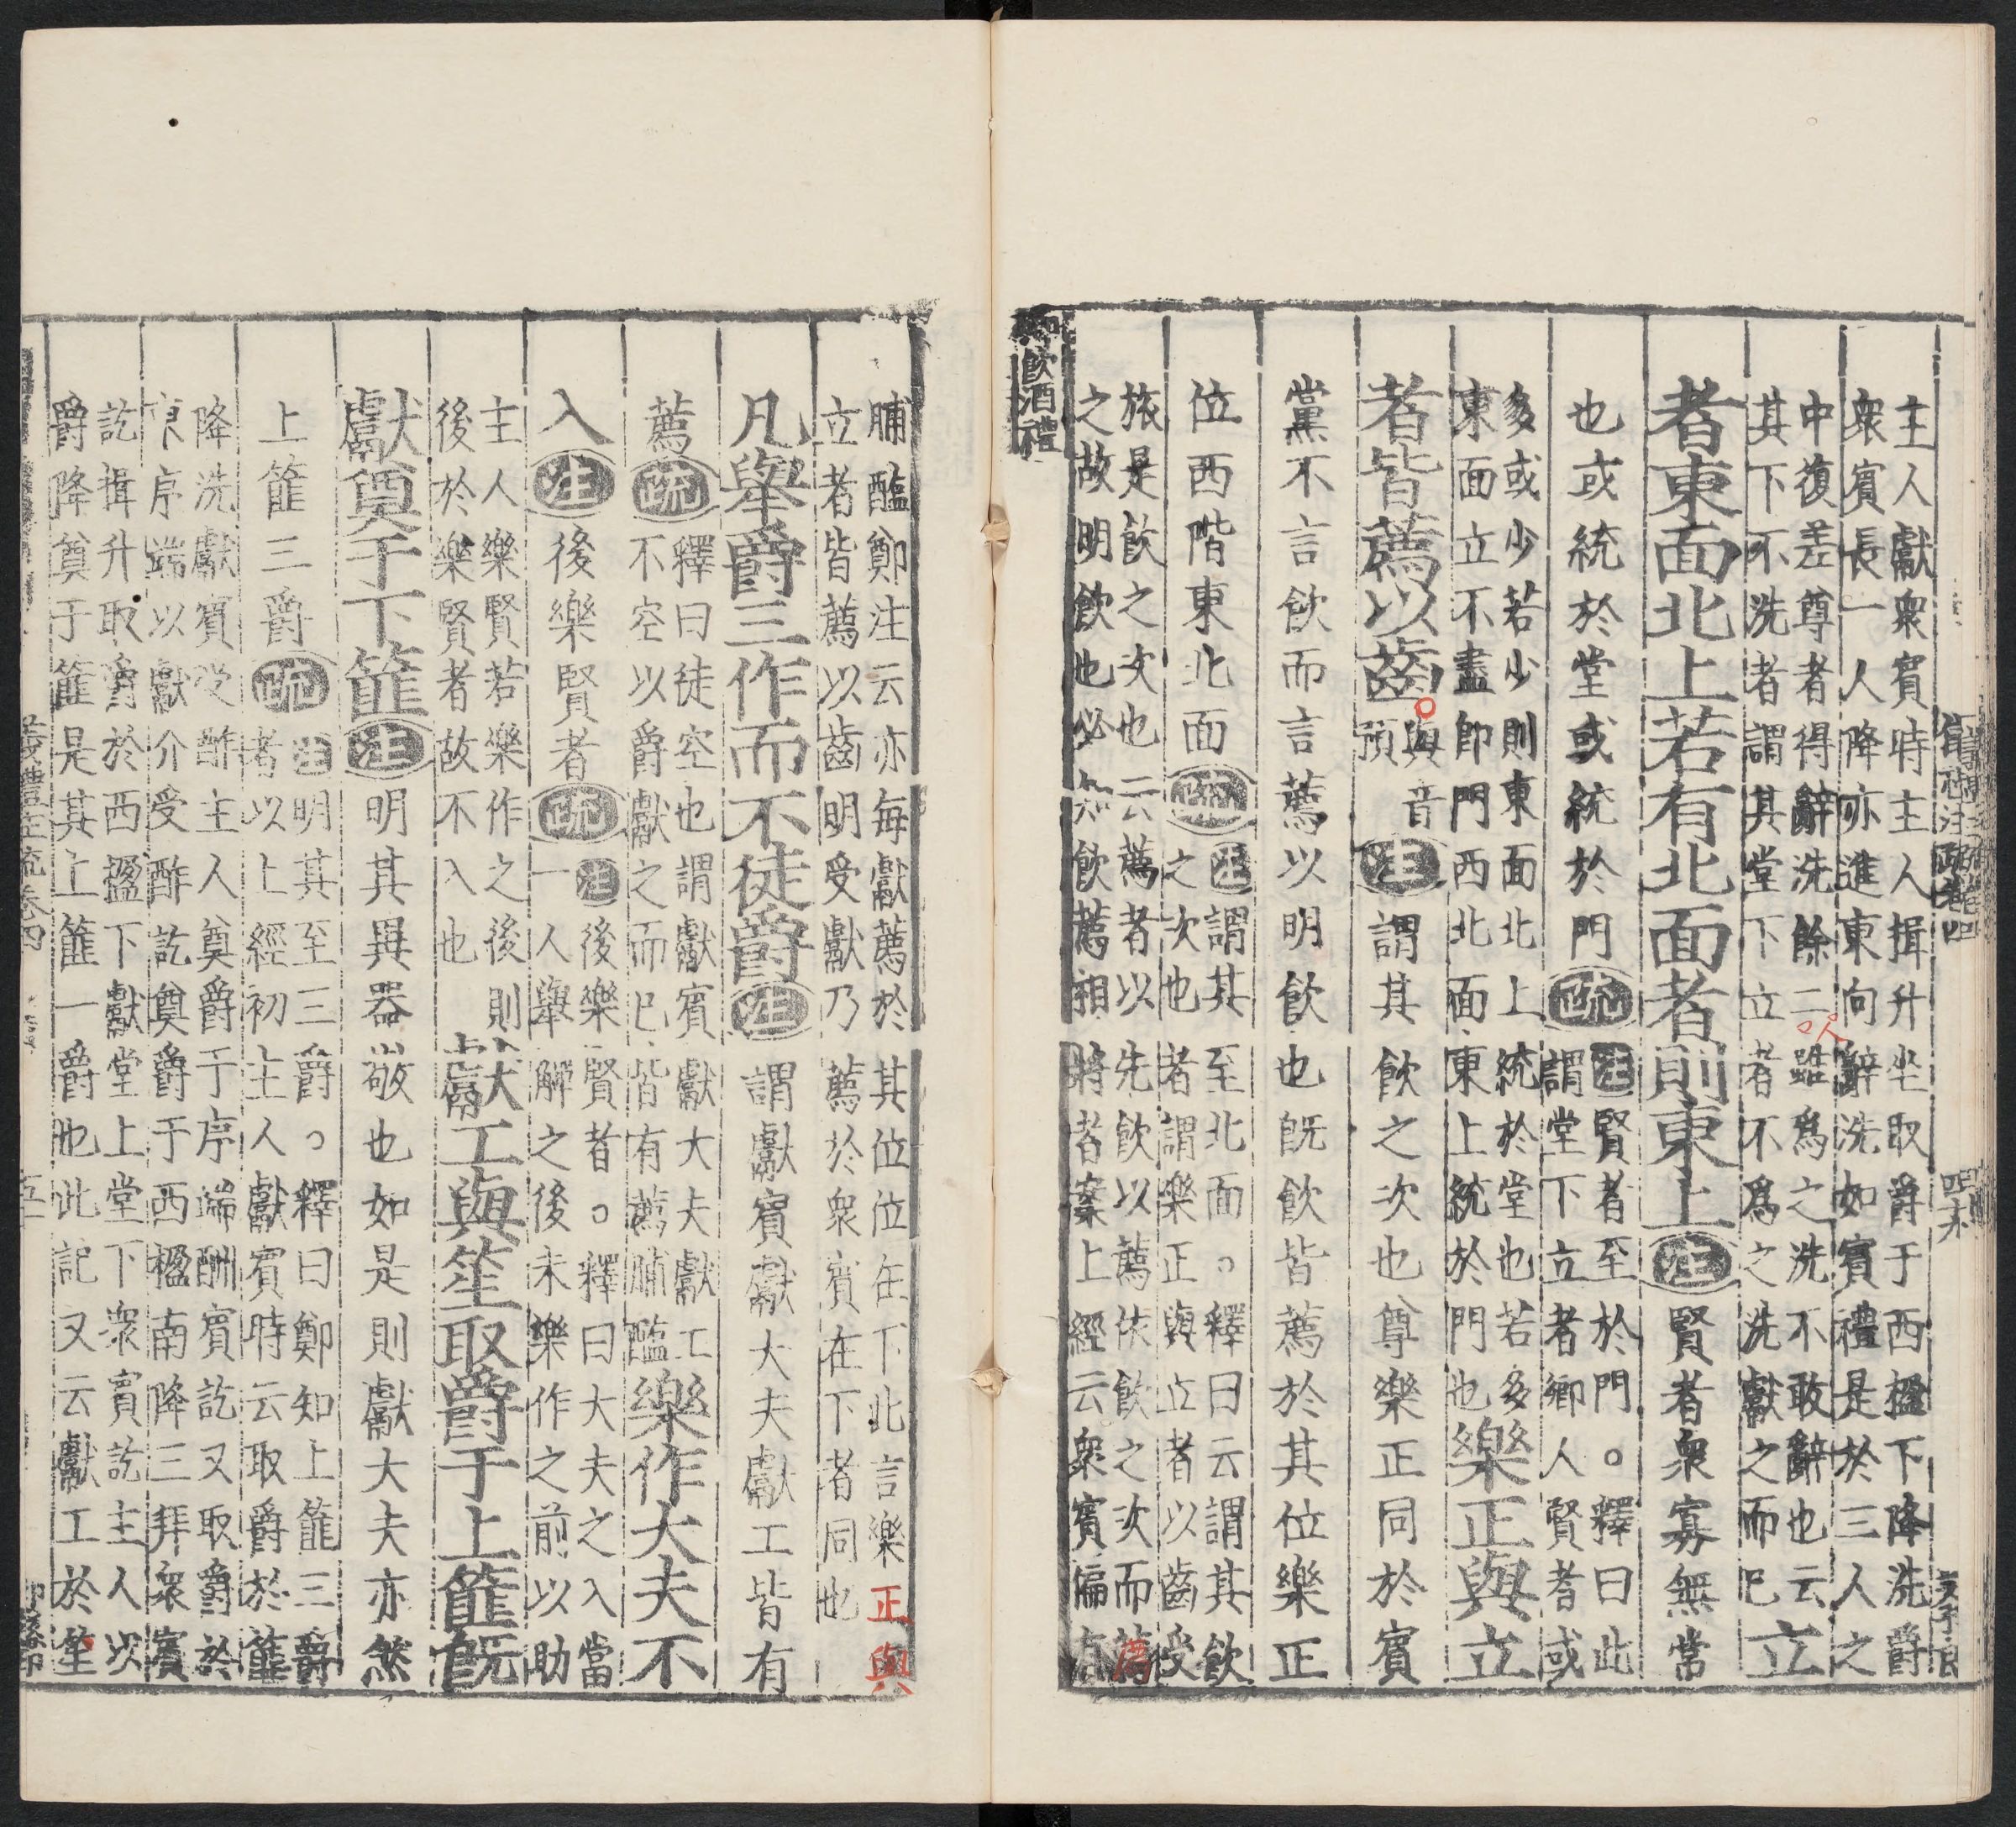 主人獻衆賓時主人揖升坐取爵于西楹下降洗爵
衆賓長一人降亦進東向辭洗如賓禮是於三人之
中復差尊者得辭洗餘二人雖爲之洗不敢辭也云
其下不洗者謂其堂下立者不爲之洗獻之而已立
者東面北上若有北面者則東上注賢者衆寡無常
也或統於堂或統於門疏
注賢者至於門。釋曰此
謂堂下立者鄉人賢者或
多或少若少則東面北上統於堂也若多
東面立不盡即門西北面東上統於門也樂正與立
者皆薦以齒
與音
預
注謂其飲之次也尊樂正同於賓
黨不言飲而言薦以明飲也既飲皆薦於其位樂正
位西階東北面疏
注謂其至北面。釋曰云謂其飲
之次也者謂樂正與立者以齒受
旅是飲之次也云薦者以先飲以薦依飲之次而薦
之故明飲也必知飲薦相將者案上經云衆賓偏有
鄉飲酒禮
脯醢鄭注云亦每獻薦於其位位在下此言樂正與
立者皆薦以齒明受獻乃薦於衆賓在下者同也
凡舉爵三作而不徒爵注謂獻賓獻大夫獻工皆有
薦疏
釋曰徒空也謂獻賓獻大夫獻工
不空以爵獻之而已皆有薦脯醢
樂作大夫不
入注後樂賢者疏
注後樂賢者。釋曰大夫之入當
一人舉觶之後未樂作之前以助
主人樂賢若樂作之後則
後於樂賢者故不入也
獻工與笙取爵于上篚既
獻奠于下篚注明其異器敬也如是則獻大夫亦然
上篚三爵疏
注明其至三爵。釋曰鄭知上篚三爵
者以上經初主人獻賓時云取爵於篚
降洗獻賓受酢主人奠爵于序端酬賓訖又取爵於
東序端以獻介受酢訖奠爵于西楹南降三拜衆賓
訖揖升取爵於西楹下獻堂上堂下衆賓訖主人以
爵降奠于篚是其上篚一爵也此記又云獻工於笙